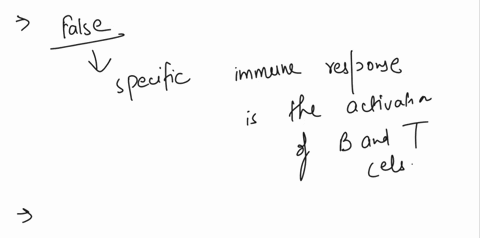 ⇒ False
↓
specific immune response
is the activation
of B and T
cels.
⇒